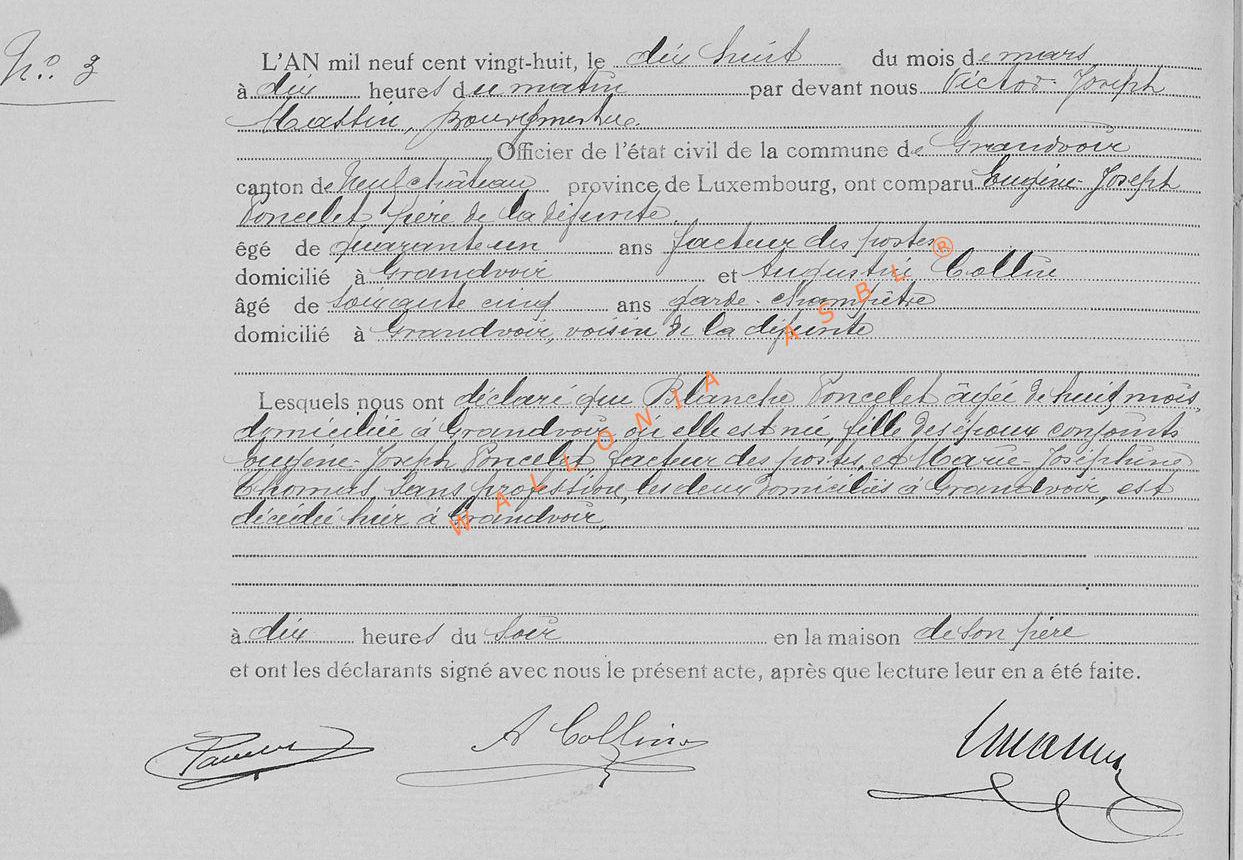 N° 3
L'AN mil neuf cent vingt-huit, le dix huit du mois de mars
à dix heures du matin par devant nous Victor Joseph
Massin, Bourgmestre.
Officier de l'état civil de la commune de Grandvoir
canton de Neufchâteau province de Luxembourg, ont comparu Eugène-Joseph
Poncelet, père de la défunte.
êgé de quarante un ans facteur des postes
domicilié à Grandvoir et Augustin Collin
âgé de soixante cinq ans garde-champêtre
domicilié à Grandvoir, voisin de la défunte
Lesquels nous ont déclaré que Blanche Poncelet âgée de huit mois,
domiciliée à Grandvoir, où elle est née, fille des époux conjoints
Eugène-Joseph Poncelet, facteur des postes, et Marie-Joséphine
Thomas, sans profession, les deux domiciliés à Grandvoir, est
décédée hier à Grandvoir,
à dix heures du soir en la maison de son père
et ont les déclarants signé avec nous le présent acte, après que lecture leur en a été faite.
A Collin
WALLONIA ASBL ®